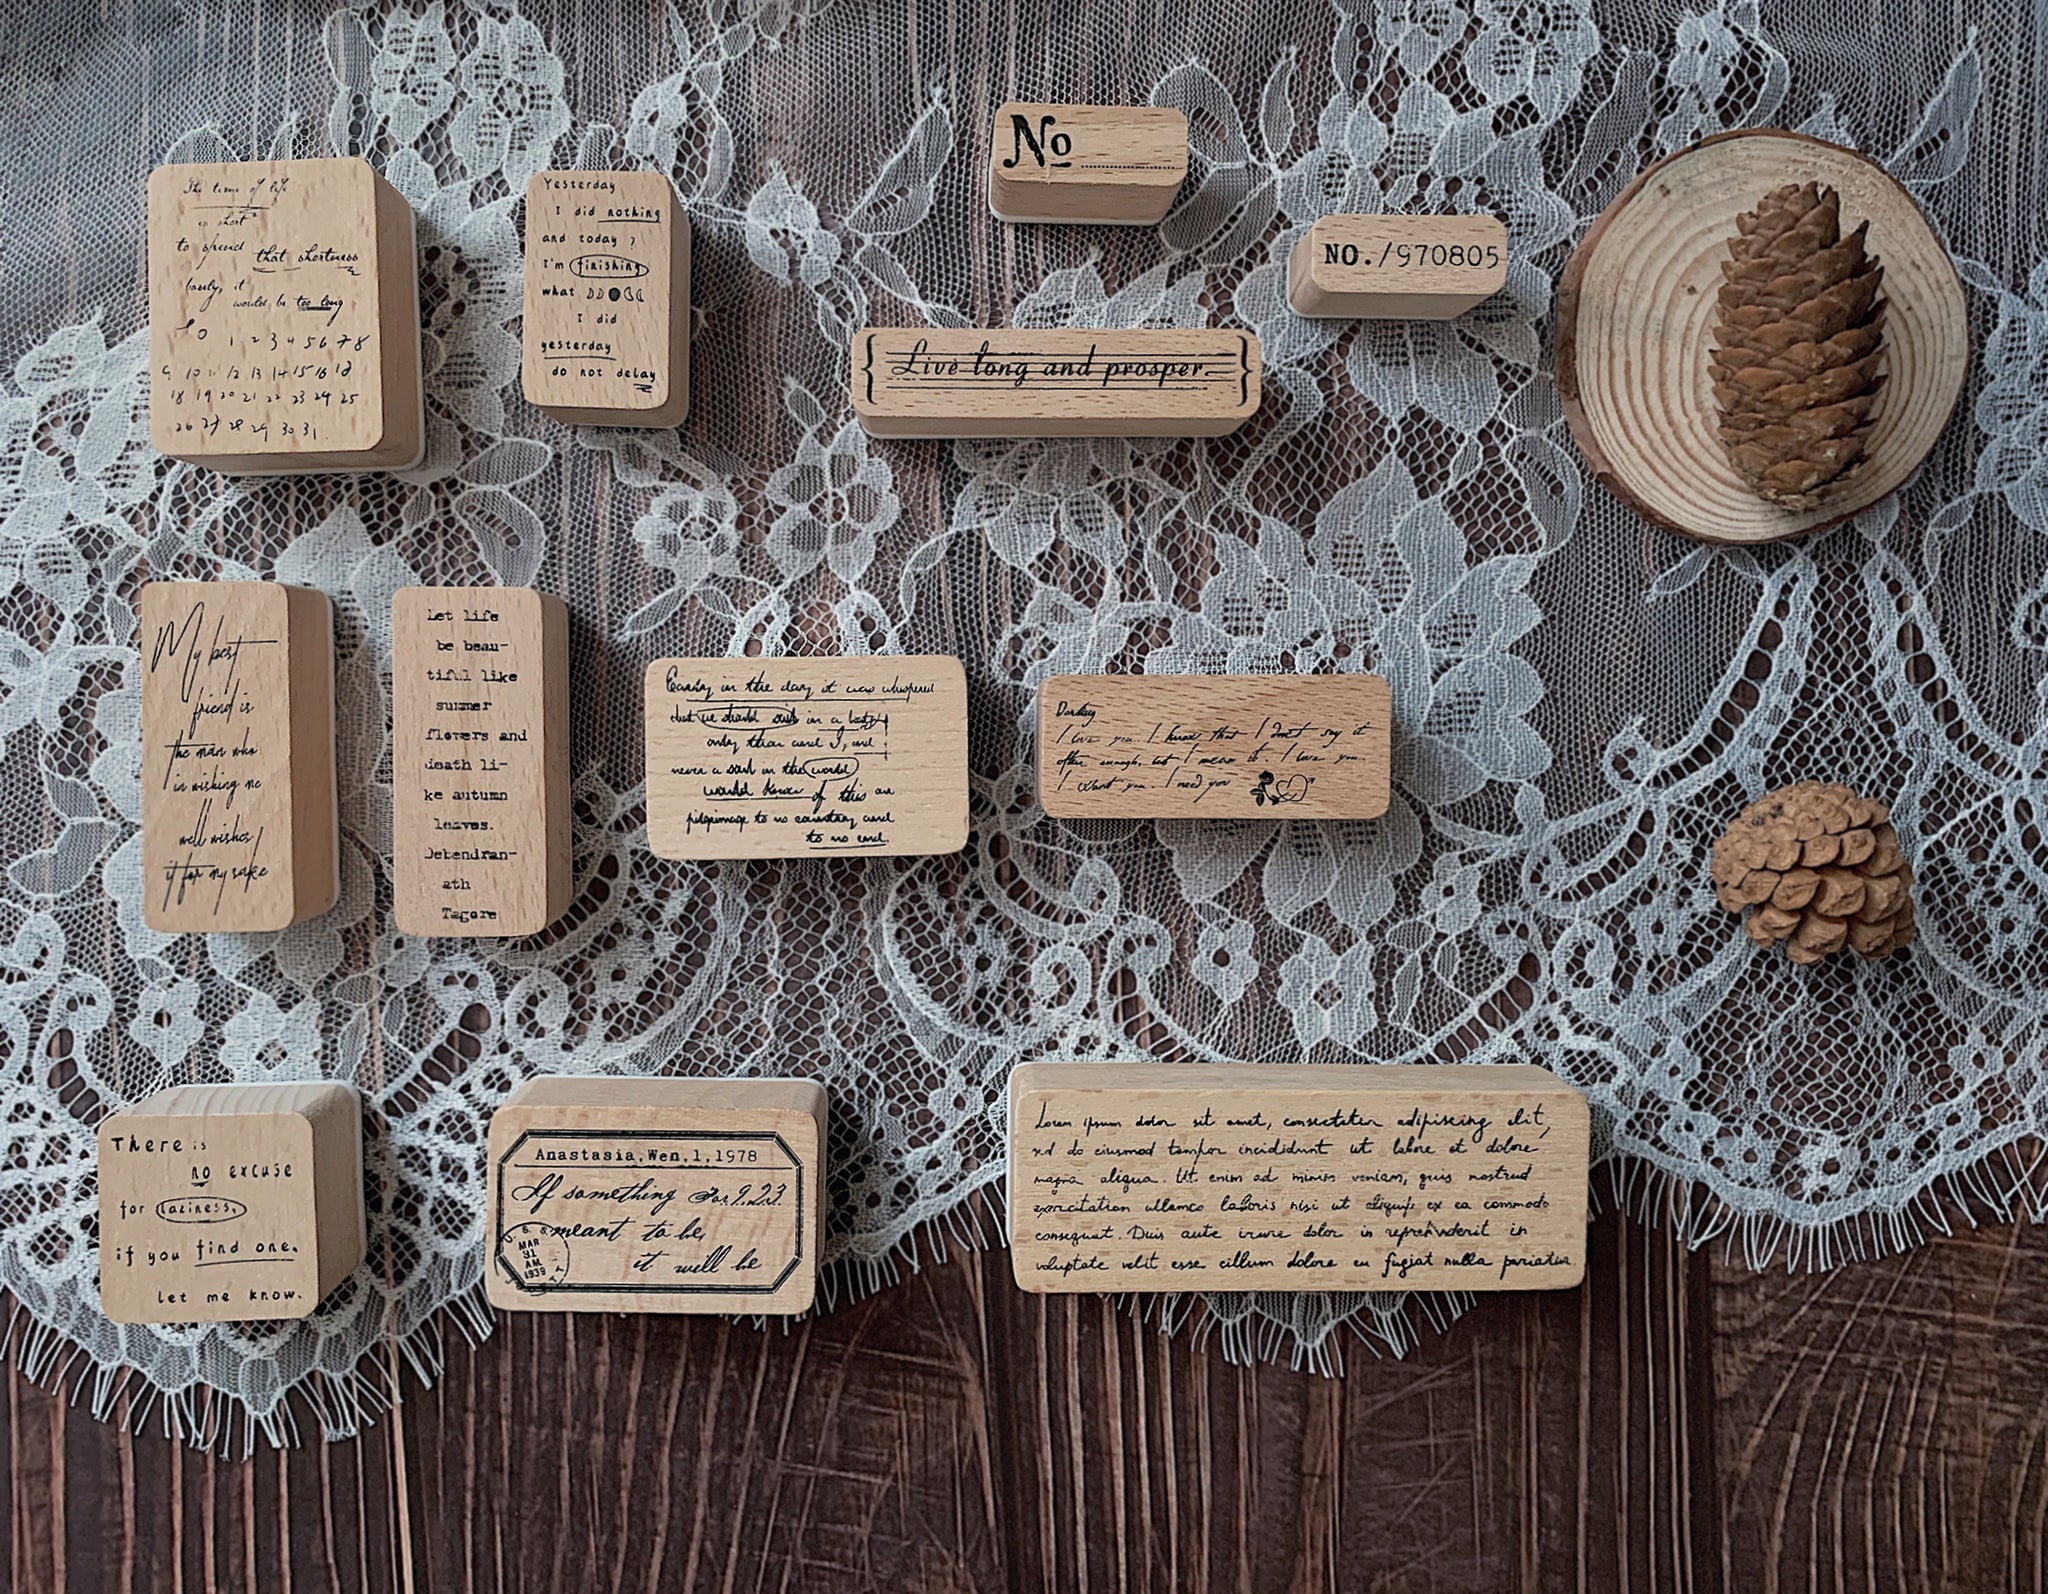 No
The time of life
is short
to spend that shortness
basely, it
would be too long
0 1 2 3 4 5 6 7 8
9 10 11 12 13 14 15 16 18
18 19 20 21 22 23 24 25
26 27 28 29 30 31.
Yesterday
I did nothing
and today ?
I'm finishing
what
I did
yesterday
do not delay
NO./970805
{Live long and prosper.}
My best
friend is
the man who
in wishing me
well wishes
it for my sake
let life
be beau-
tiful like
summer
flowers and
death li-
ke autumn
leaves.
Debendran-
ath
Tagore
Early in the day it was whispered
that we should sail in a boat,
only thou and I, and
never a soul in the world
would know of this our
pilgrimage to no country and
to no end.
Darling
I love you. I know that I don't say it
often enough, but I mean it. I love you.
I want you. I need you
There is
no excuse
for laziness,
if you find one,
let me know.
Anastasia.Wen.1.1978
If something For 9.23.
meant to be,
it will be
MAR
31
AM.
1939
Lorem ipsum dolor sit amet, consectetur adipiscing elit,
sed do eiusmod tempor incididunt ut labore et dolore
magna aliqua. Ut enim ad minim veniam, quis nostrud
exercitation ullamco laboris nisi ut aliquip ex ea commodo
consequat. Duis aute irure dolor in reprehenderit in
voluptate velit esse cillum dolore eu fugiat nulla pariatur.